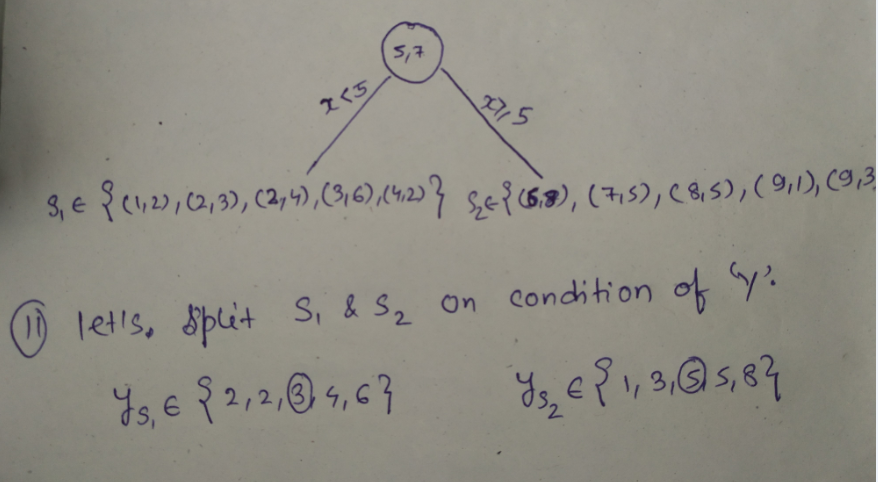 5,7
x<5
x≥5
S₁ ∈ {(1,2),(2,3),(2,4),(3,6),(4,2)} S₂∈{(6,8),(7,5),(8,5),(9,1),(9,3
(11) let's. Split S₁ & S₂ on condition of 'y'.
yS₁ ∈ {2,2,③,4,6} yS₂ ∈ {1,3,⑤,5,8}